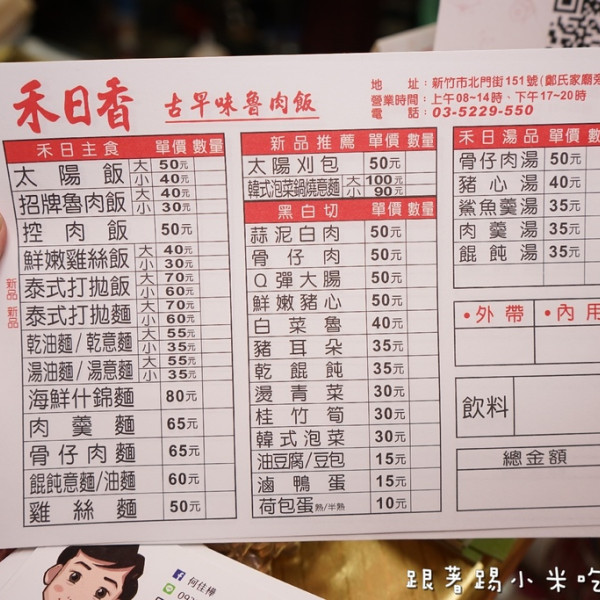 禾日香 古早味魯肉飯
地 址：新竹市北門街151號(鄭氏家廟旁
營業時間：上午08~14時、下午17~20時
電 話：03-5229-550
禾日主食 單價 數量
太陽飯 大 50元
小 40元
招牌魯肉飯 大 40元
小 30元
控肉飯 50元
鮮嫩雞絲飯 大 40元
小 30元
新品 泰式打拋飯 大 70元
小 60元
新品 泰式打拋麵 大 70元
小 60元
乾油麵/乾意麵 大 55元
小 35元
湯油麵/湯意麵 大 55元
小 35元
海鮮什錦麵 80元
肉羹麵 65元
骨仔肉麵 65元
餛飩意麵/油麵 60元
雞絲麵 50元
新品推薦 單價 數量
太陽刈包 50元
韓式泡菜鍋燒意麵 大 100元
小 90元
黑白切 單價 數量
蒜泥白肉 50元
骨仔肉 50元
Q彈大腸 50元
鮮嫩豬心 50元
白菜魯 40元
豬耳朵 35元
乾餛飩 35元
燙青菜 30元
桂竹筍 30元
韓式泡菜 30元
油豆腐/豆包 15元
滷鴨蛋 15元
荷包蛋 熟/半熟 10元
禾日湯品 單價 數
骨仔肉湯 50元
豬心湯 40元
鯊魚羹湯 35元
肉羹湯 35元
餛飩湯 35元
•外帶 •內用
飲料
總金額
何佳樺
跟著踢小米吃